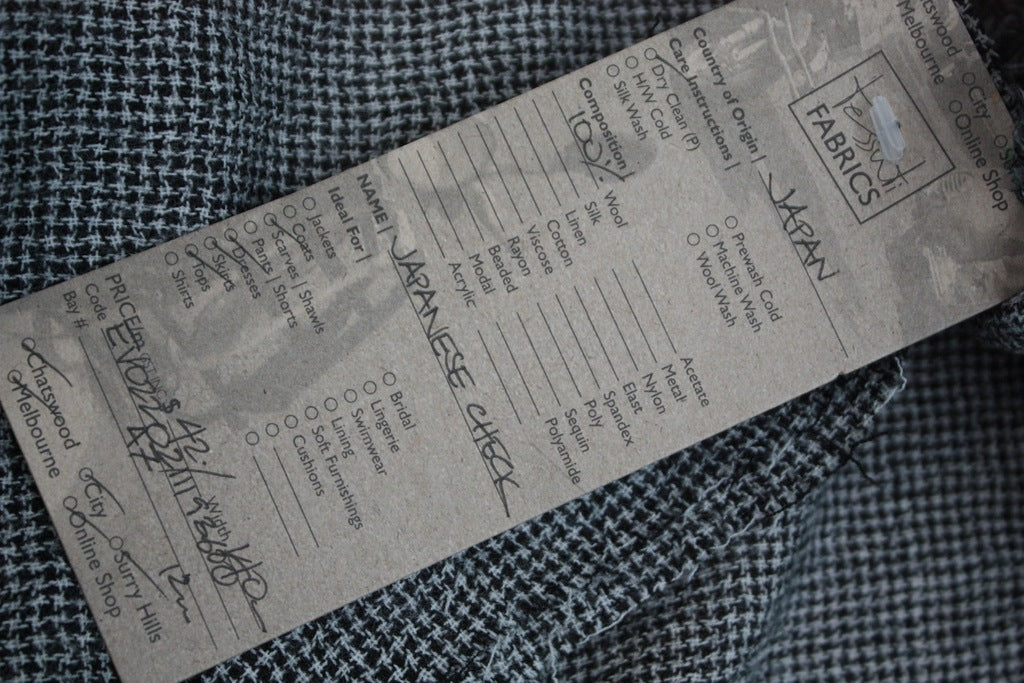 tessuti
FABRICS
Country of Origin | JAPAN
Care Instructions |
Dry Clean (P)
H/W Cold
Silk Wash
Prewash Cold
Machine Wash
Wool Wash
Composition |
100% Wool
Silk
Linen
Cotton
Viscose
Rayon
Beaded
Modal
Acrylic
Acetate
Metal
Nylon
Elast
Spandex
Poly
Sequin
Polyamide
NAME | JAPANESE CHECK
Ideal For |
Jackets
Coats
Scarves | Shawls
Pants | Shorts
Dresses
Skirts
Tops
Shirts
Bridal
Lingerie
Swimwear
Lining
Soft Furnishings
Cushions
PRICE $42 Width 140
Code
Bay # 12m
Chatswood City Surry Hills
Melbourne Online Shop
Chatswood City
Melbourne Online Shop